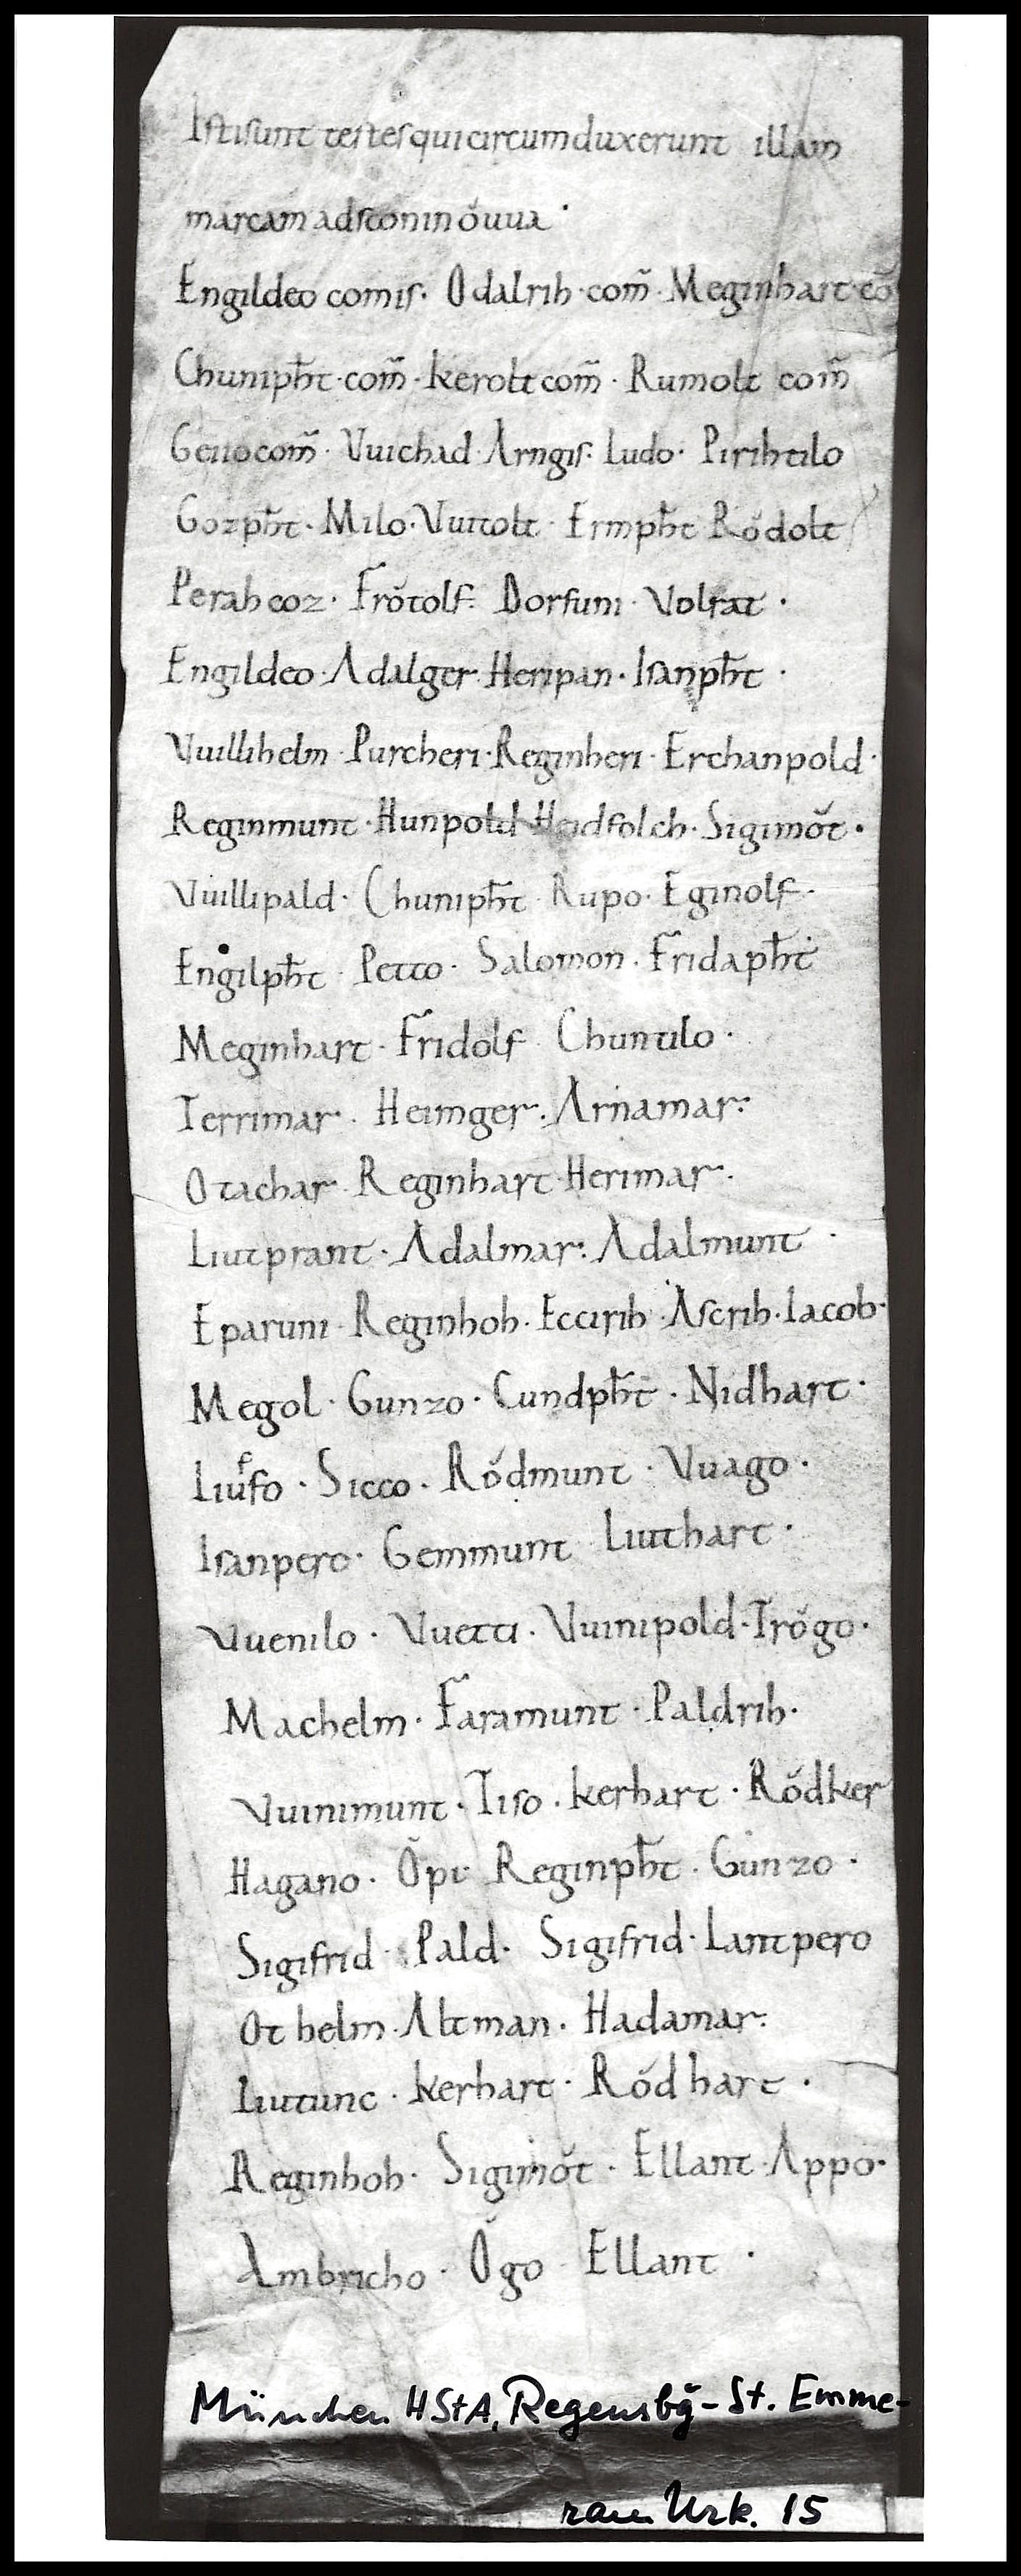 Isti sunt testes qui circumduxerunt illam
marcam ad sconinŏuua ·
Engildeo comis · Odalrih · com̃ · Meginhart · cõ
Chunip̄ht · com̃ · kerolt com̃ · Rumolt com̃
Geuo com̃ · Vuichad · Arngis · Ludo · Pirihtilo
Gozp̄ht · Milo · Vuitolt · Ermp̄ht Rŏdolt
Perahcoz · Frŏtolf · Dorfuni · Volrat ·
Engildeo · Adalger · Heripan · Isanp̄ht ·
Vuillihelm · Purcheri · Reginheri · Erchanpold ·
Reginmunt · Hunpold Heidfolch · Sigimŏt ·
Vuillipald · Chunip̄ht Rupo · Eginolf ·
Engilp̄ht · Petto · Salomon · Fridap̄ht
Meginhart · Fridolf Chuntilo ·
Terrimar · Heimger · Arnamar ·
Otachar · Reginhart · Herimar ·
Liutprant · Adalmar · Adalmunt ·
Eparuni · Reginhoh · Eccirih · Ascrih · Iacob ·
Megol · Gunzo · Cundp̄ht · Nidhart ·
Liufso · Sicco · Rŏdmunt · Vuago ·
Isanpero · Gemmunt Liuthart ·
Vuenilo · Vuetti · Vuinipold · Trŏgo ·
Machelm · Faramunt · Paldrih ·
Vuinimunt · Tiso · kerhart · Rŏdker
Hagano · Ŏpi · Reginp̄ht · Gunzo ·
Sigifrid · Pald · Sigifrid · Lantpero
Othelm · Altman · Hadamar ·
Liutunc · kerhart · Rŏdhart ·
Reginhoh · Sigimŏt · Ellant · Appo ·
Ambricho · Ŏgo · Ellant ·
München HStA, Regensbg̃ - St. Emme-
ram Urk. 15